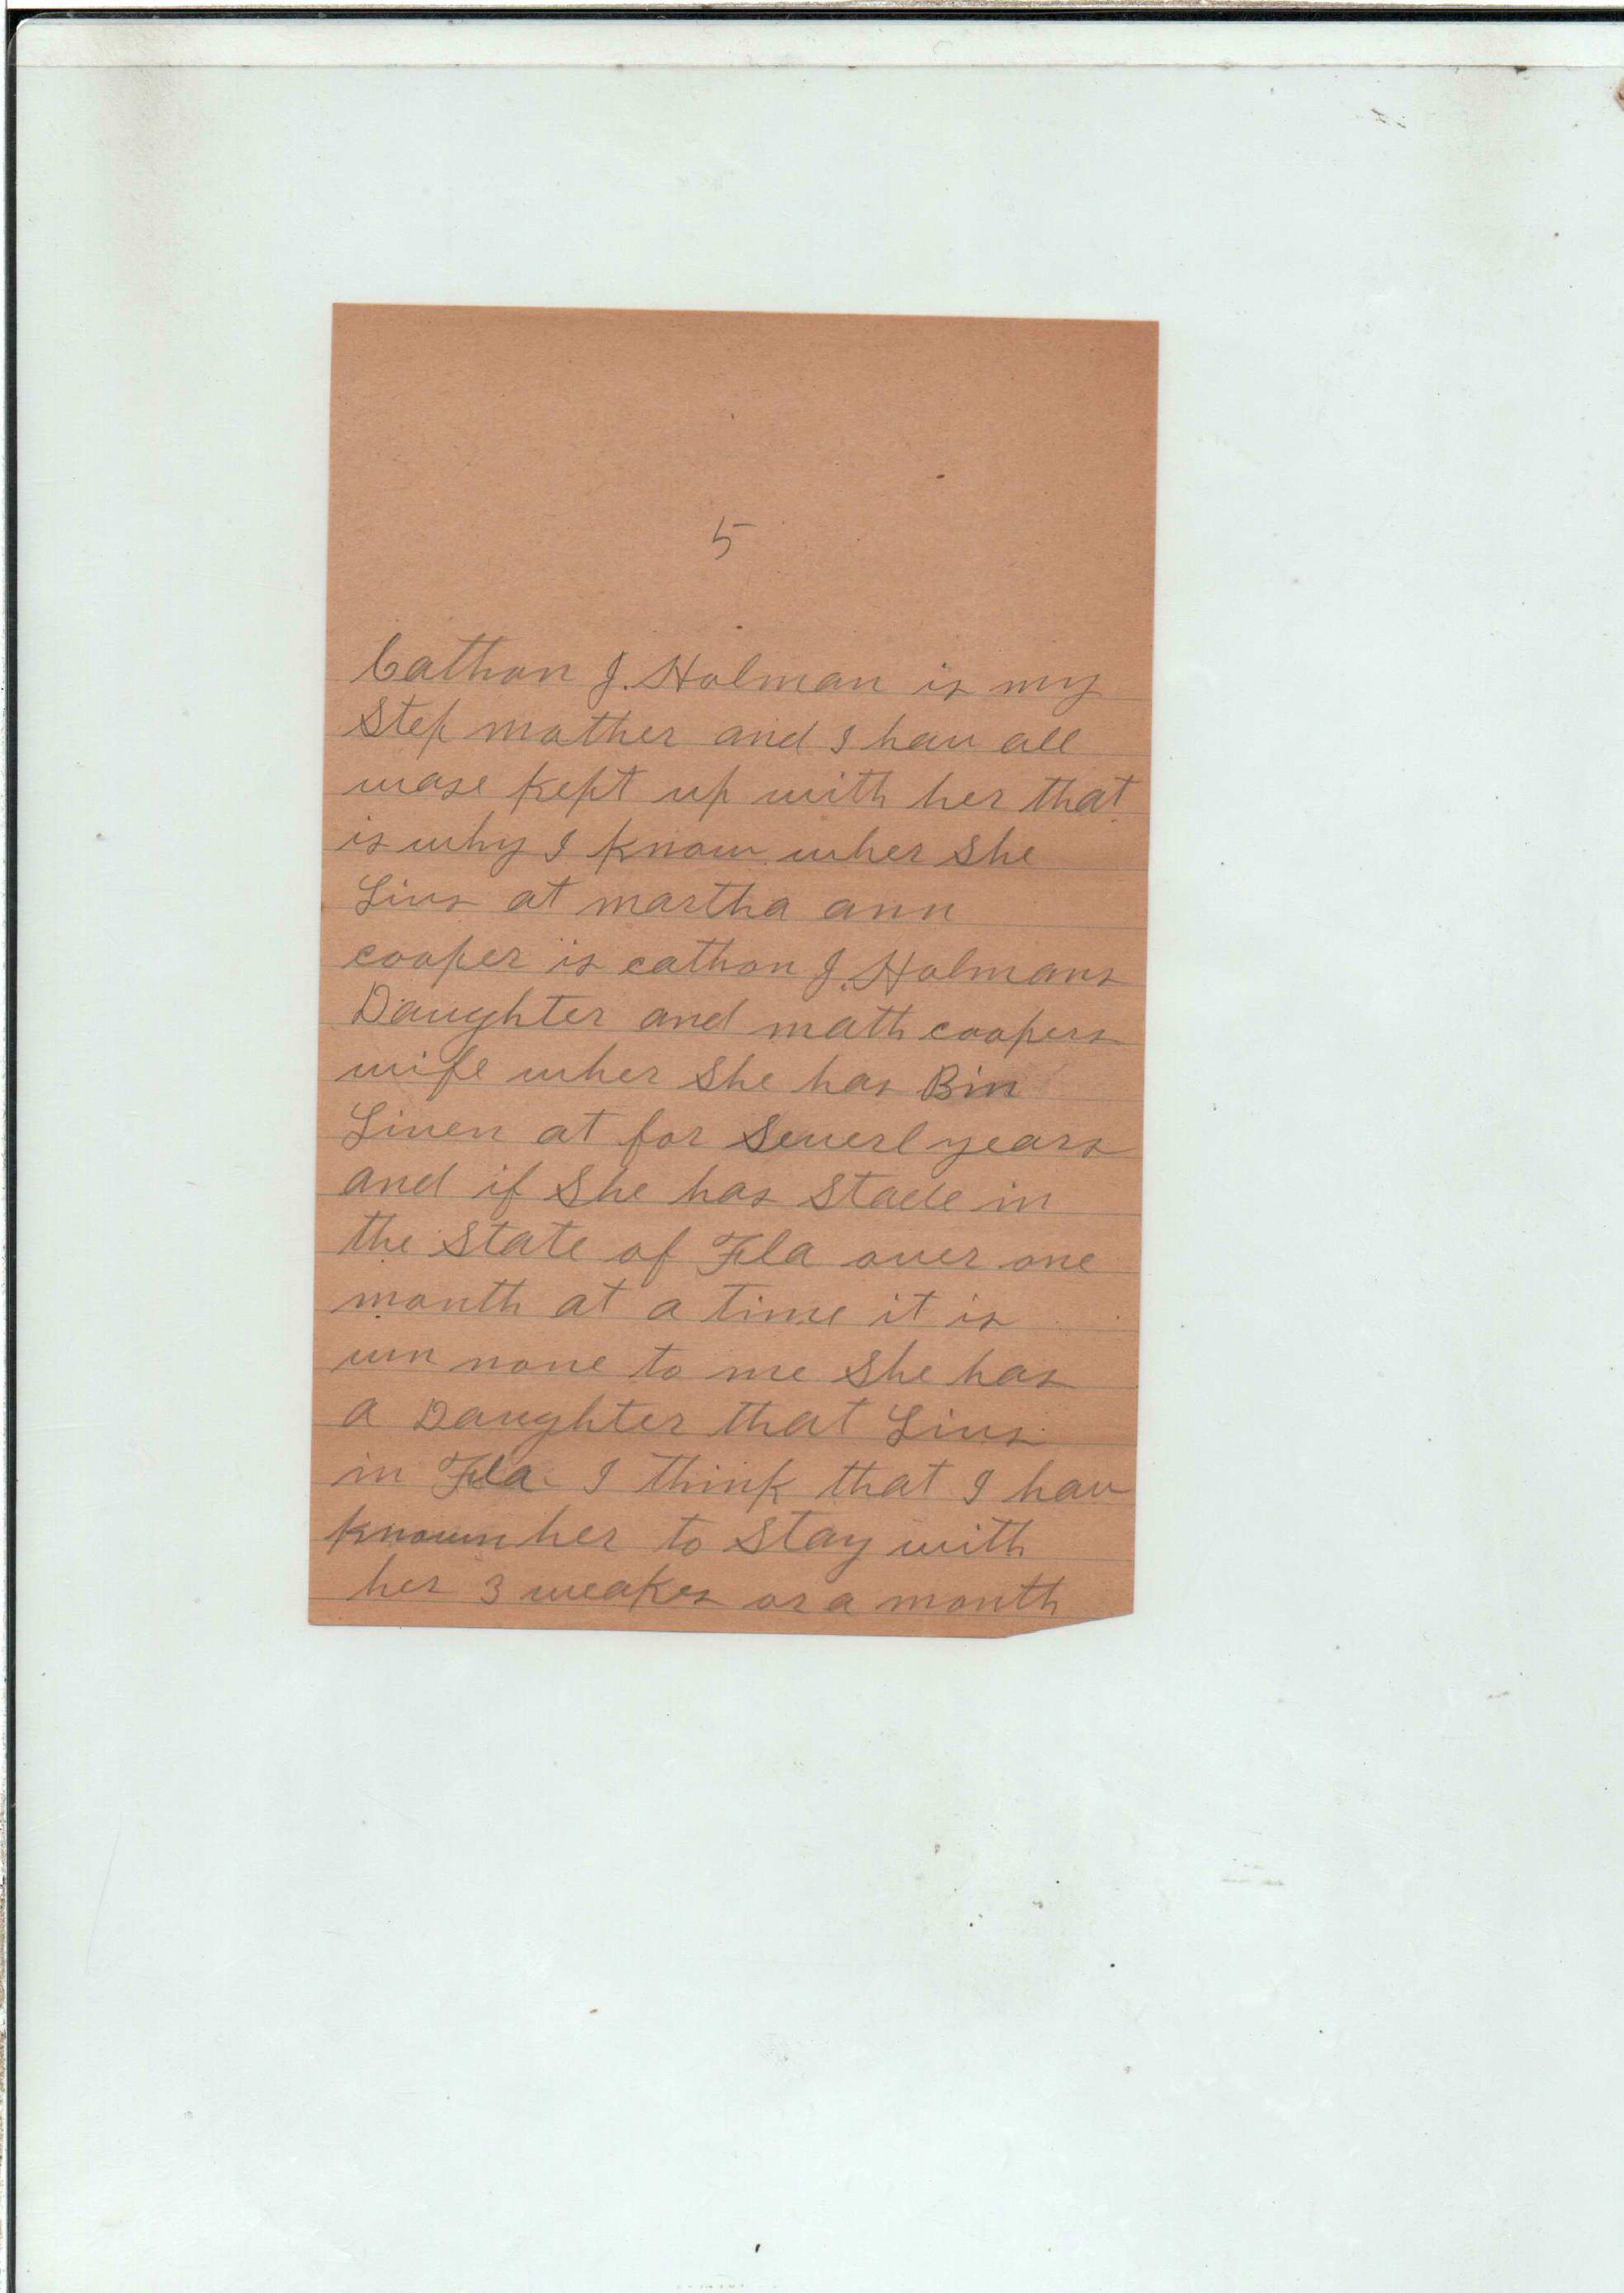 5
Cathon J. Holman is my
Step mother and I hav all
wase kept up with her that
is why I know wher She
Livs at martha ann
cooper is cathon J. Holmans
Daughter and math coopers
wife wher She has Bin
Liven at for Severl years
and if She has Stade in
the State of Fla over one
month at a time it is
un none to me She has
a Daughter that Livs
in Fla I think that I hav
known her to Stay with
her 3 weakes or a month